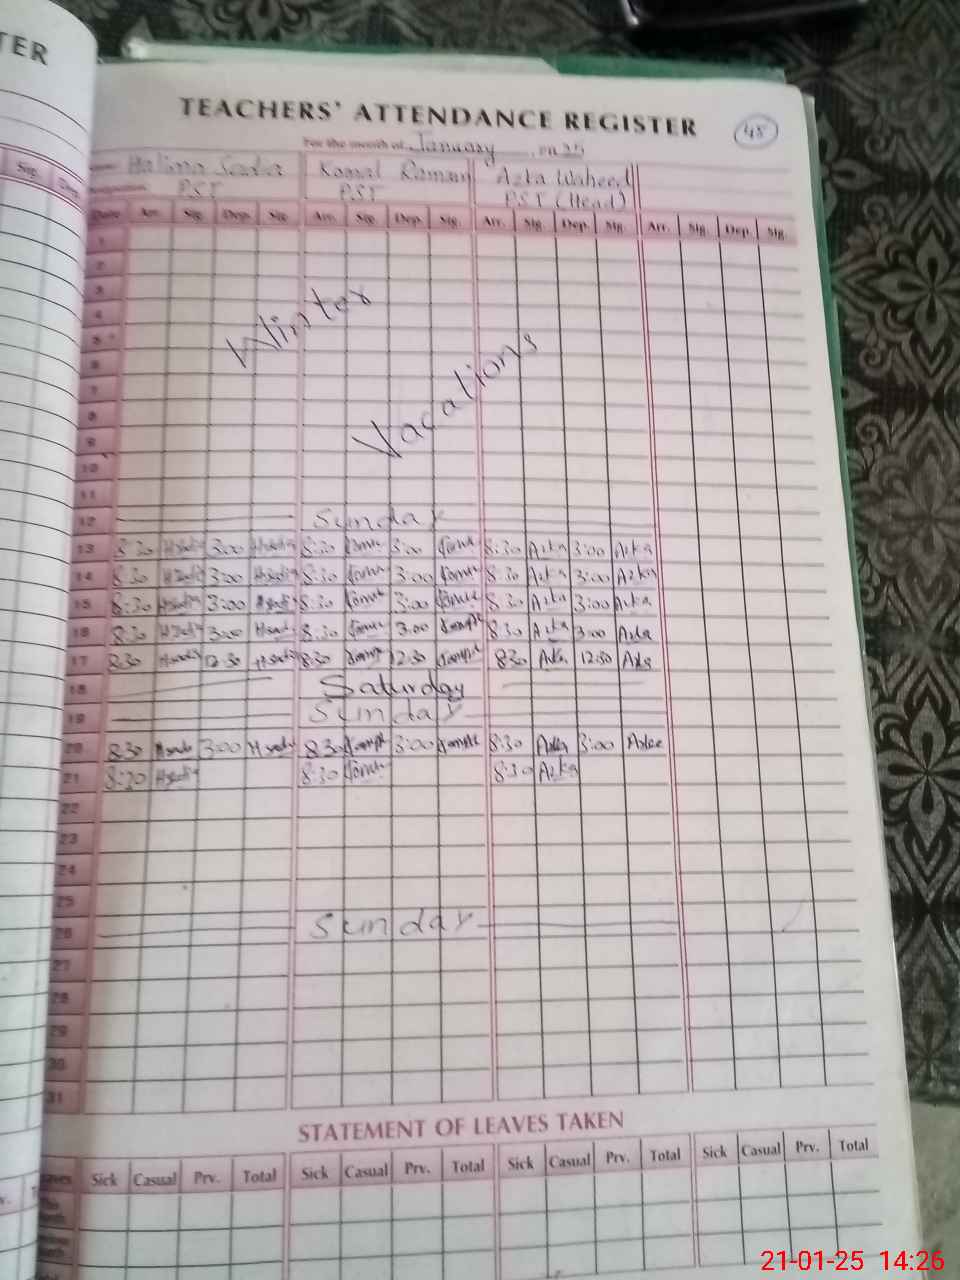 TER
Sig.
TEACHERS' ATTENDANCE REGISTER
48
For the month of January 2025
Halima Sadia Komal Raman Azka Waheed
PST PST PST (Head)
Date Arr. Sig. Dep. Sig. Arr. Sig. Dep. Sig. Arr. Sig. Dep. Sig. Arr. Sig. Dep. Sig.
1
2
3
4
5
6
7
8
9
10
11
Winter
Vacations
12 Sunday
13 8:30 Hsadia 3:00 Hsadia 8:30 3:00 8:30 Azka 3:00 Azka
14 8:30 Hsadia 3:00 Hsadia 8:30 3:00 8:30 Azka 3:00 Azka
15 8:30 Hsadia 3:00 Hsadia 8:30 3:00 8:30 Azka 3:00 Azka
16 8:30 Hsadia 3:00 Hsadia 8:30 3:00 8:30 Azka 3:00 Azka
17 8:30 Hsadia 12:30 Hsadia 8:30 12:30 830 Azka 12:30 Azka
18 Saturday
19 Sunday
20 8:30 Hsadia 3:00 Hsadia 8:30 3:00 8:30 Azka 3:00 Azka
21 8:30 Hsadia 8:30 8:30 Azka
22
23
24
25
26 Sunday
27
28
29
30
31
STATEMENT OF LEAVES TAKEN
Sick Casual Prv. Total Sick Casual Prv. Total Sick Casual Prv. Total Sick Casual Prv. Total
21-01-25 14:26